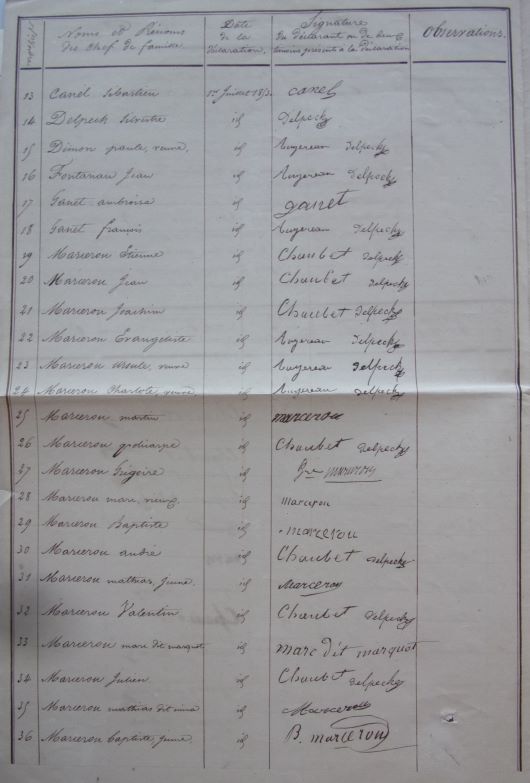 Numéros Noms et Prénoms des Chef de famille Date de la déclaration. Signature du déclarant ou de deux témoins présents à la déclaration Observations.
13 Canél Sébastien 1er Juillet 1853. canel
14 Delpech Silvestre id Delpech
15 Dimon paule, veuve, id Augereau Delpech
16 Fontanau Jean id Augereau Delpech
17 Ganet ambroise id ganet
18 Ganet françois id Augereau Delpech
19 Marceron Etienne id Choubet Delpech
20 Marceron Jean id Choubet Delpech
21 Marceron Joachim id Choubet Delpech
22 Marceron Evangeliste id Augereau Delpech
23 Marceron ursule, veuve id Augereau Delpech
24 Marceron Charlote, veuve id Augereau Delpech
25 Marceron martin id marcerou
26 Marceron policarpe id Choubet Delpech
27 Marceron Grégoire id Gre marcerou
28 Marceron marc, vieux, id marcerou
29 Marceron Baptiste id marcerou
30 Marceron andré id Choubet Delpech
31 Marceron mathias, Jeune, id Marcerou
32 Marceron Valentin id Choubet Delpech
33 Marceron marc dit marquot id marc dit marquot
34 Marceron Julien id Choubet Delpech
35 Marceron mathias dit id Marcerou
36 Marceron baptiste, Jeune id B. marcerou